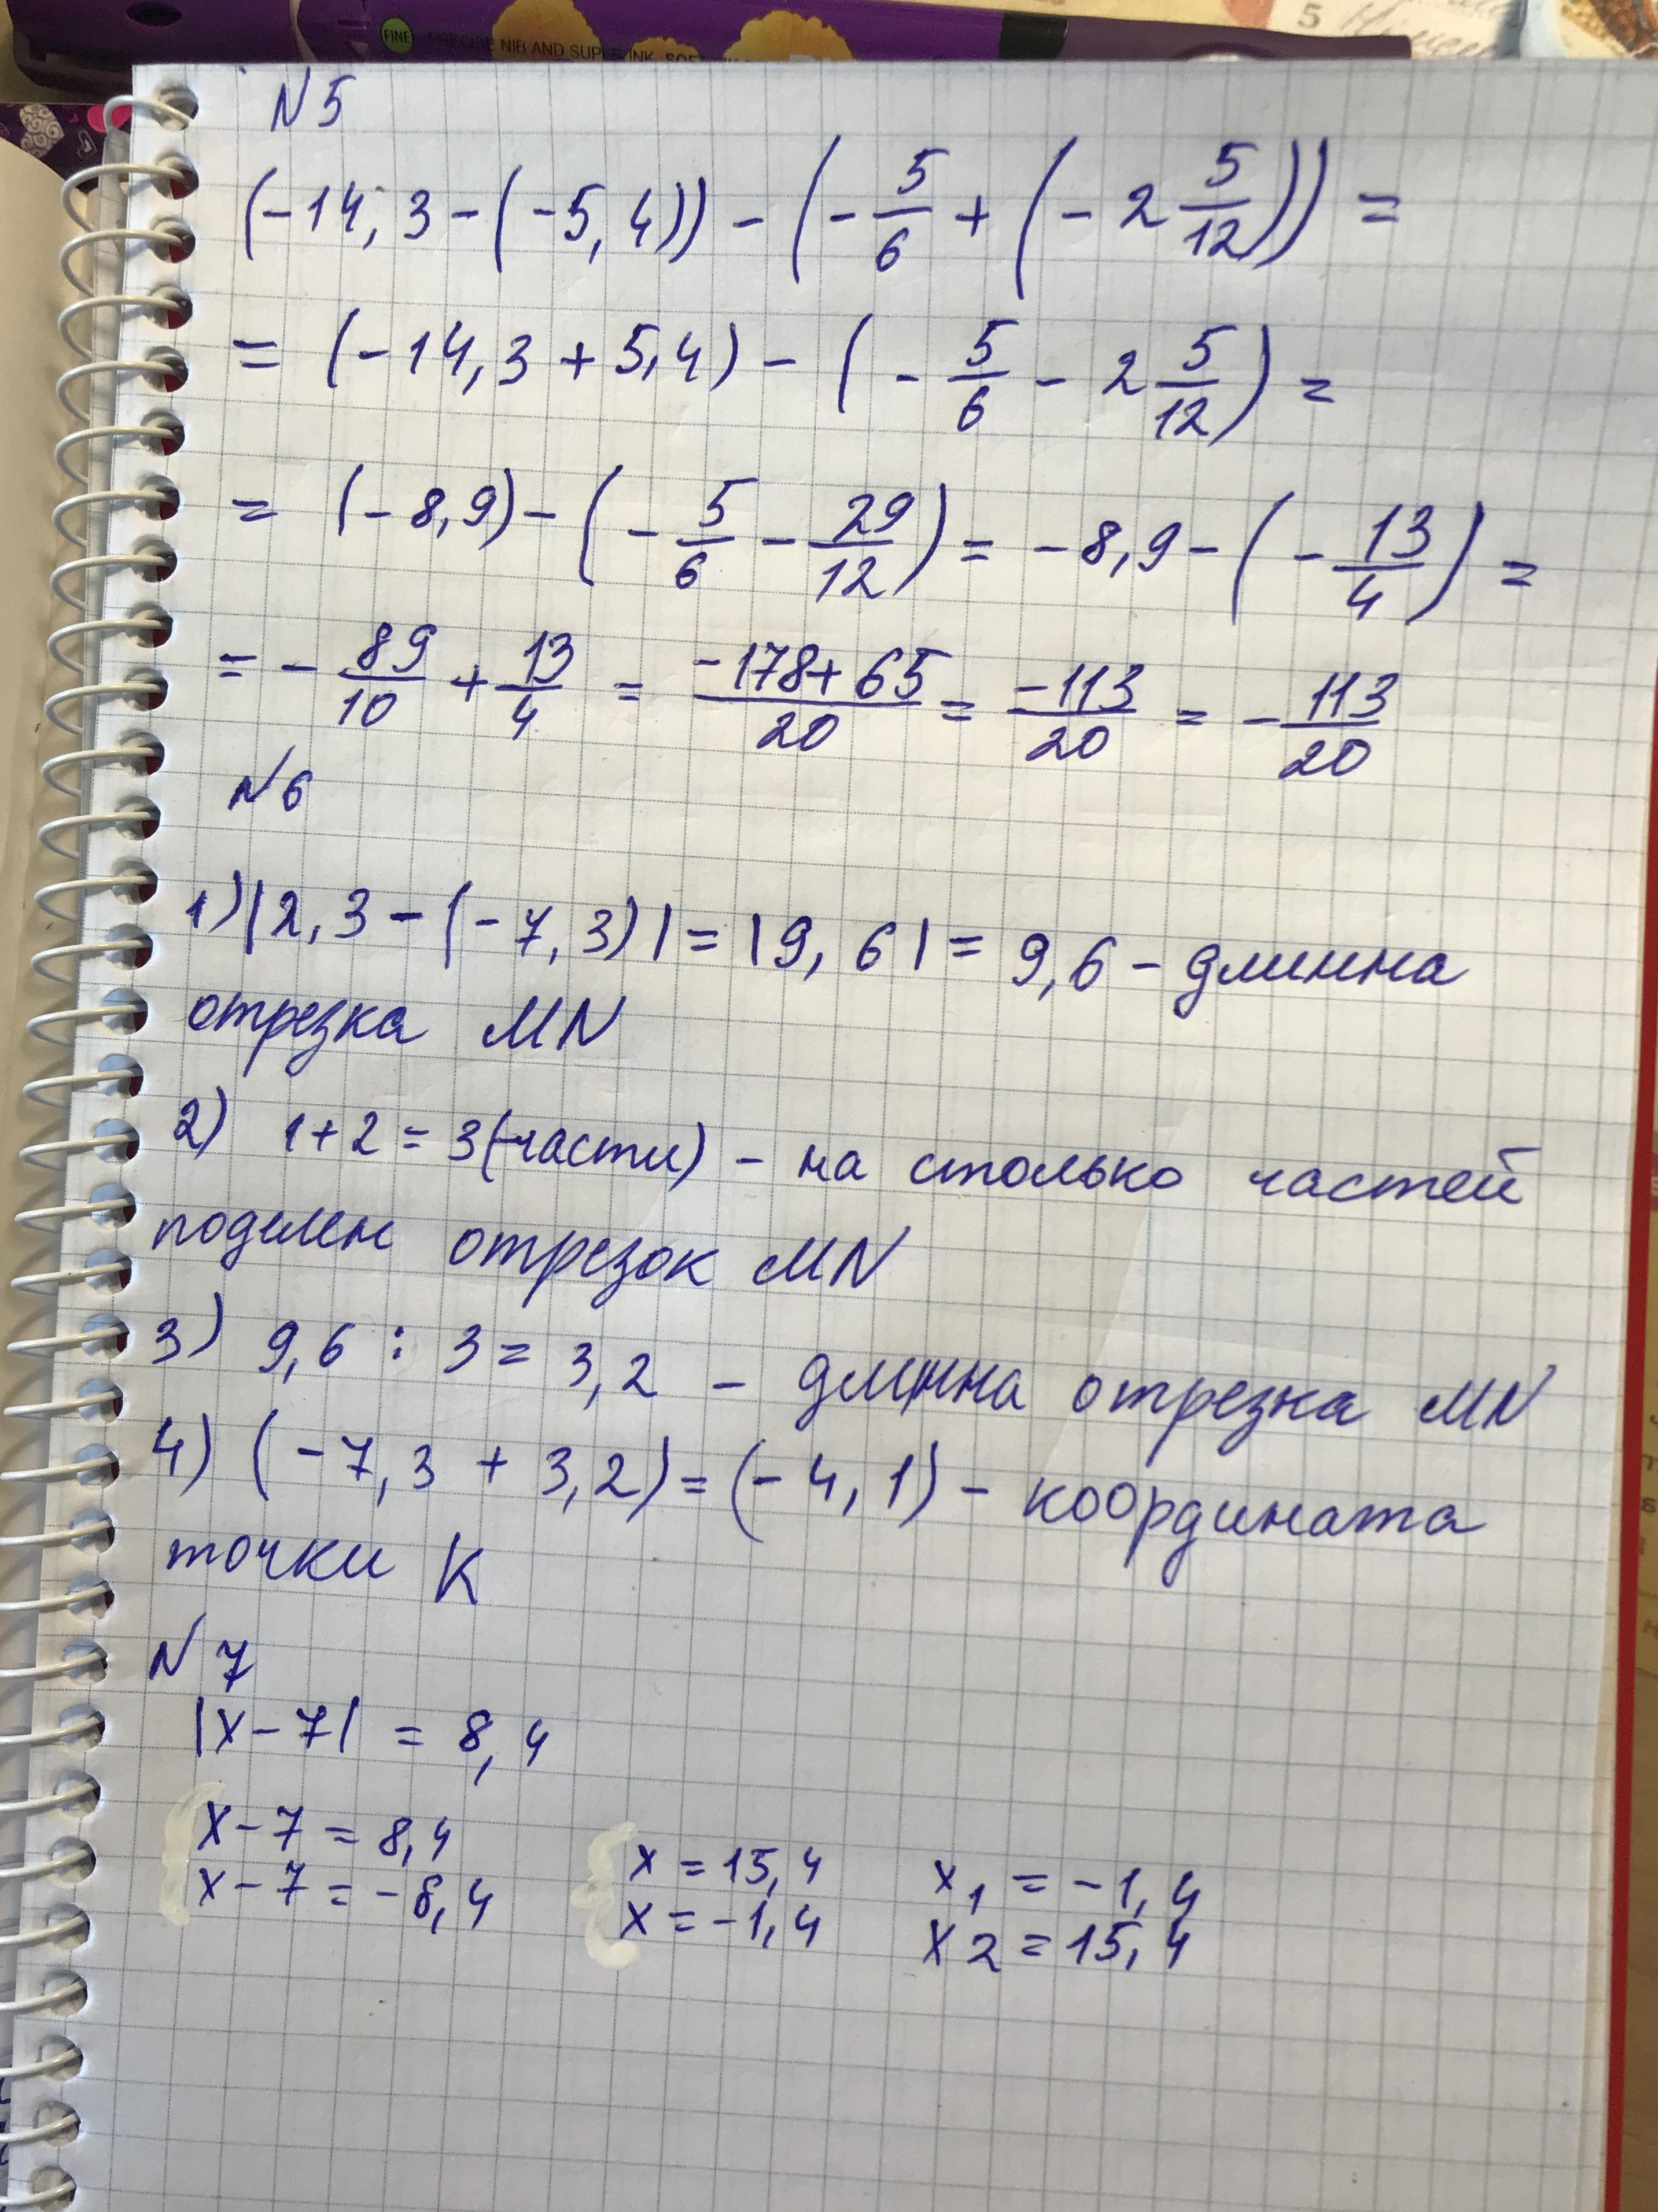 FINE PRECISE NIB AND SUPER INK, SOF
5
N5
(-14,3-(-5,4)) - (-5/6 + (-2 5/12)) =
= (-14,3 + 5,4) - (-5/6 - 2 5/12) =
= (-8,9) - (-5/6 - 29/12) = -8,9 - (-13/4) =
= -89/10 + 13/4 = -178+65/20 = -113/20 = -113/20
N6
1) |2,3 - (-7,3)| = |9,6| = 9,6 - длинна
отрезка MN
2) 1+2 = 3 (части) - на столько частей
поделен отрезок MN
3) 9,6 : 3 = 3,2 - длинна отрезка MN
4) (-7,3 + 3,2) = (-4,1) - координата
точки K
N7
|x-7| = 8,4
x-7 = 8,4 x = 15,4 x1 = -1,4
x-7 = -8,4 x = -1,4 x2 = 15,4